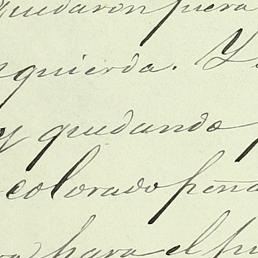 quedaron fuera
izquierda. Y
y quedando
colorado peña
para el pu